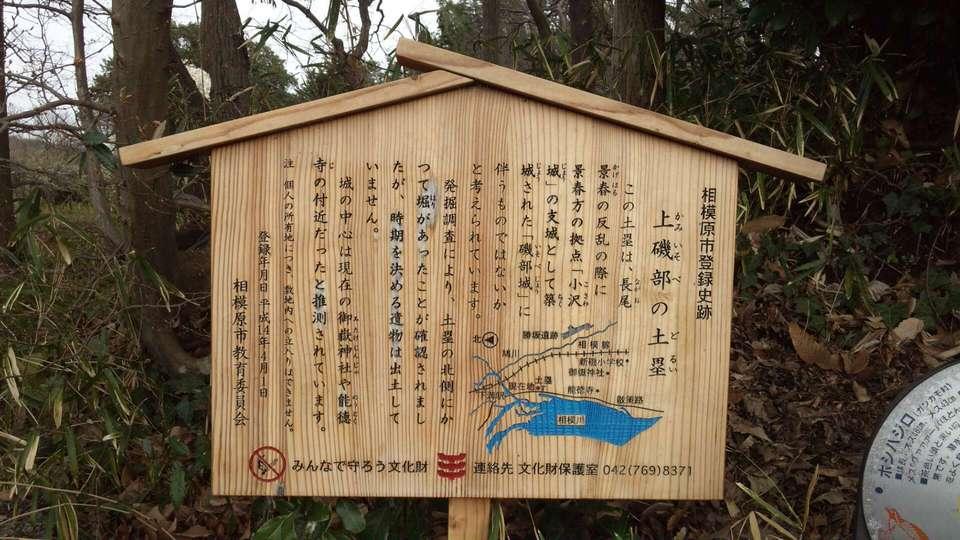 相模原市登録史跡
かみいそべ どるい
上磯部の土塁
この土塁は、長尾
景春の反乱の際に
景春方の拠点「小沢
城」の支城として築
城された「磯部城」に
伴うものではないか
と考えられています。
発掘調査により、土塁の北側にか
つて堀があったことが確認されまし
たが、時期を決める遺物は出土して
いません。
城の中心は現在の御嶽神社や能徳
寺の付近だったと推測されています。
注 個人の所有地につき、敷地内への立入りはできません。
登録年月日 平成14年4月1日
相模原市教育委員会
北
勝坂遺跡
鳩川
相模線
新磯小学校
御嶽神社
能徳寺
土塁
現在地
散策路
相模川
みんなで守ろう文化財
連絡先 文化財保護室 042(769)8371
ホシハジロ